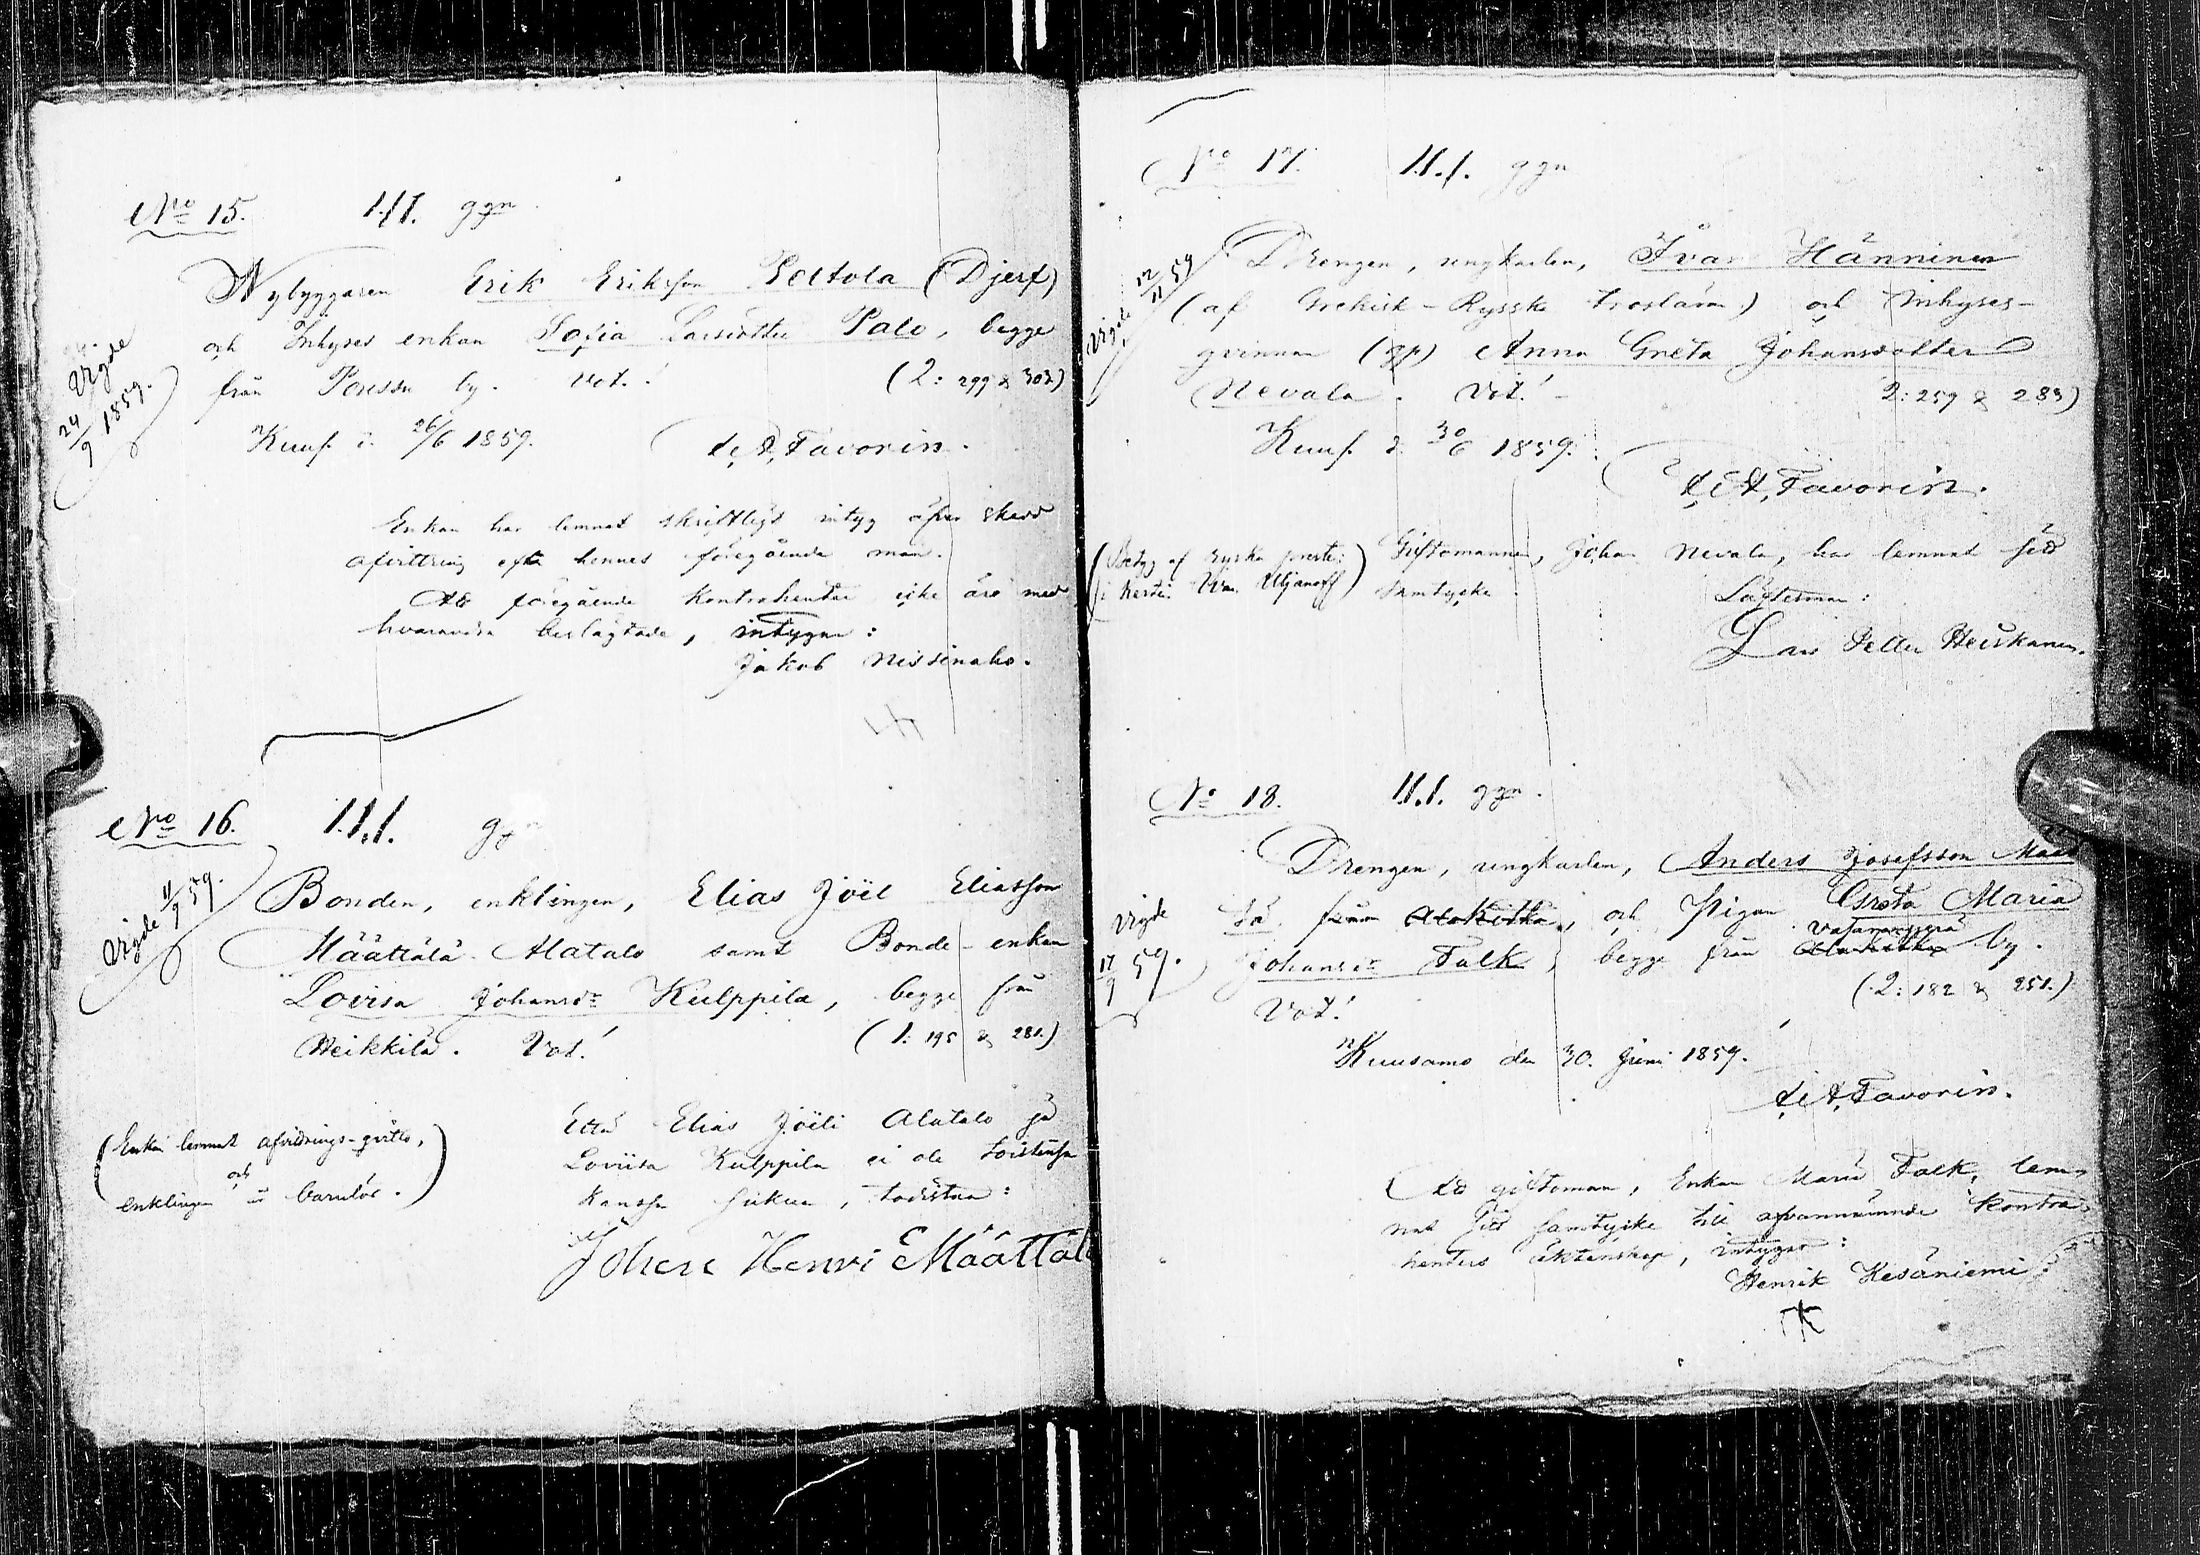 No 15. 1.1.1. ggn
Nybyggaren Erik Eriksson Peltola (Djerf)
och Inhyses enkan Sofia Larsdotter Palo, begge
från Poussu by. Vot.! (2: 299 & 303)
Vigde
24/9 1859.
Kuus. d. 26/6 1859. A. A. Favorin.
Enkan har lemnat skriftligt intyg öfver skedd
afvittring efter hennes föregående man.
Att föregående kontrahenter icke äro med
hvarandra beslägtade, intygar:
Jakob Nissinaho.
No 16. 1.1.1. ggn
Vigde 11/9 59.
Bonden, enklingen, Elias Joël Eliasson
Määttälä-Alatalo samt Bonde-enkan
Lovisa Johansdr Kulppila, begge från
Heikkilä. Vot.! (1: 195 & 281.)
(Enkan lemnat afvittrings-qvitto,
och
enklingen är barnlös.)
Että Elias Joeli Alatalo ja
Loviisa Kulppila ei ole toistensa
kanssa sukua, todistaa:
Johan Henri Määttäl
No 17. 1.1.1. ggn
Vigde 12/11 59
Drengen, ungkarlen, Ivar Hänninen
(af Grekisk-Ryska trosläran) och Inhyses-
qvinnan Anna Greta Johansdotter
Nevala. Vot.! 2: 259 & 283)
Kuus. d. 30/6 1859.
A. A. Favorin.
(Betyg af ryska presten
i Kesti: Uljanoff)
Giftomannen, Johan Nevala, har lemnat sitt
samtycke. Löftesman:
Lars Petter Heiskanen.
No 18. 1.1.1. ggn.
Drengen, ungkarlen, Anders Josefsson Määt
tä från Alakitka, och Pigan Greta Maria
Vasaraperä
Johansdr Falk, begge från Alakitka by.
Vigde
17/9 59.
(2: 182 & 251.)
Vot.!
Kuusamo den 30. Juni 1859.
A. A. Favorin.
Att giftoman, Enkan Maria Falk, lem-
nat sitt samtycke till ofvannämnde kontra-
henters äktenskap, intygar:
Henrik Kesäniemi